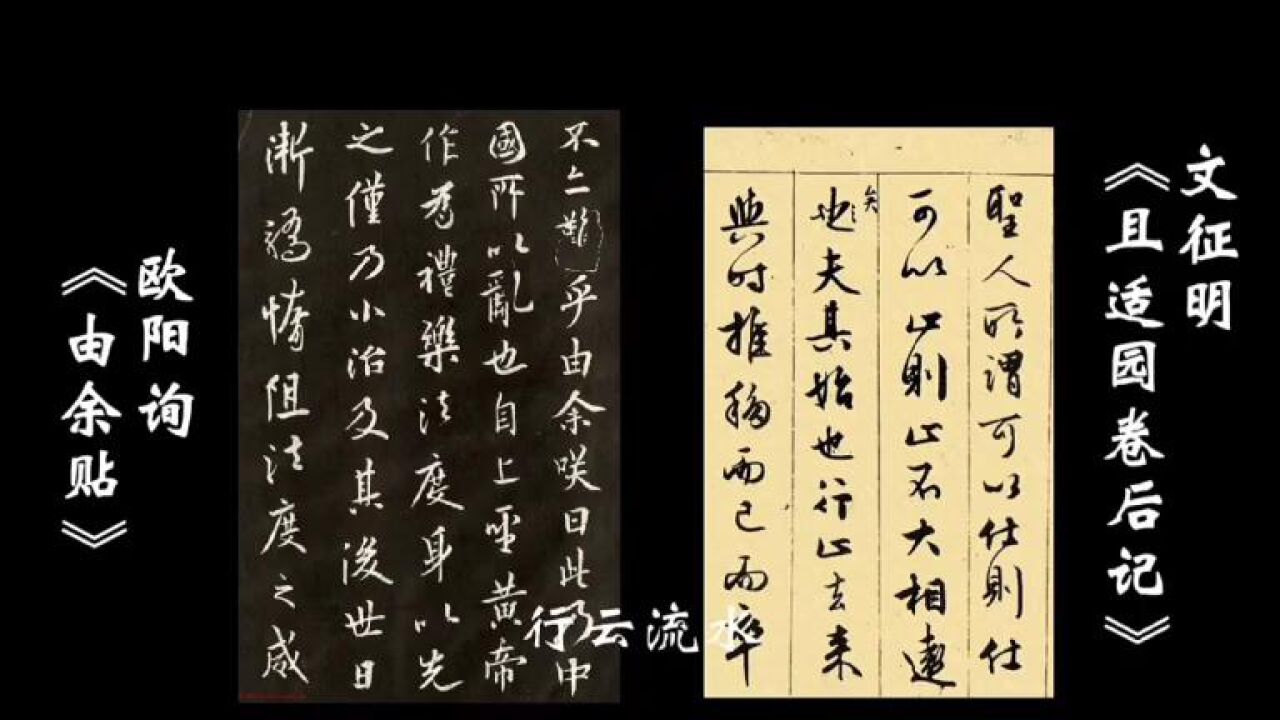 欧阳询
《由余贴》
不亦難乎由余咲曰此乃中
國所以亂也自上聖黄帝
作為禮樂法度身以先
之僅乃小治及其後世日
漸惰阻法度之威
文征明
《且适园卷后记》
聖人所謂可以仕則仕
可以止則止不大相遠
矣
也夫其始也行止去來
與時推移而已而卒
行云流水